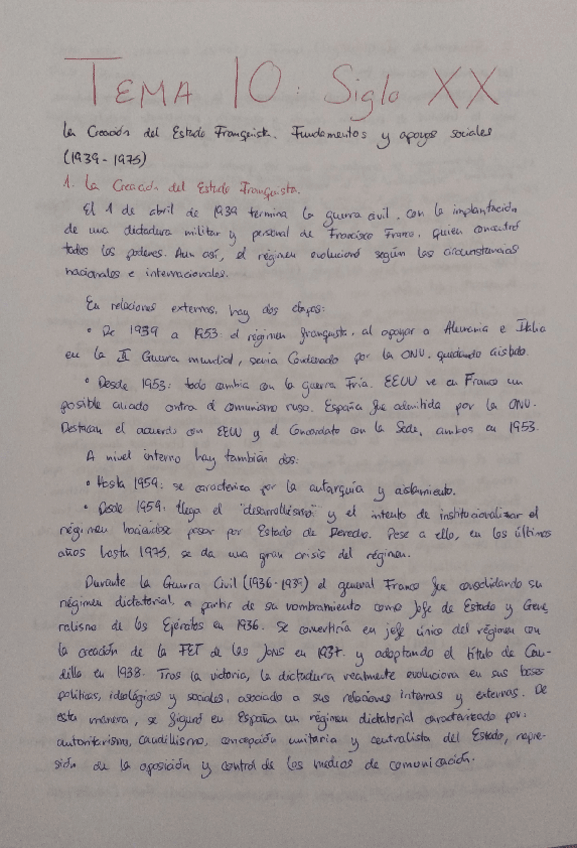 TEMA 10: Siglo XX
La Creación del Estado Franquista. Fundamentos y apoyos sociales
(1939-1975)
1. La Creación del Estado Franquista.
El 1 de abril de 1939 termina la guerra civil, con la implantación
de una dictadura militar y personal de Francisco Franco, quien concentró
todos los poderes. Aun así, el régimen evolucionó según las circunstancias
nacionales e internacionales.
En relaciones externas, hay dos etapas:
• De 1939 a 1953: el régimen franquista, al apoyar a Alemania e Italia
en la II Guerra mundial, sería Condenado por la ONU, quedando aislado.
• Desde 1953: todo cambia con la guerra Fría. EEUU ve en Franco un
posible aliado contra el comunismo ruso. España fue admitida por la ONU.
Destacan el acuerdo con EEUU y el Concordato con la Sede, ambos en 1953.
A nivel interno hay también dos:
• Hasta 1959: se caracteriza por la autarquía y aislamiento.
• Desde 1959: llega el "desarrollismo" y el intento de institucionalizar el
régimen haciéndose pasar por Estado de Derecho. Pese a ello, en los últimos
años hasta 1975, se da una gran crisis del régimen.
Durante la Guerra Civil (1936-1939) el general Franco fue consolidando su
régimen dictatorial, a partir de su nombramiento como Jefe de Estado y Gene
ralísimo de los Ejércitos en 1936. Se convertiría en jefe único del régimen con
la creación de la FET de las Jons en 1937 y adoptando el título de Cau-
dillo en 1938. Tras la victoria, la dictadura realmente evoluciona en sus bases
políticas, ideológicas y sociales, asociado a sus relaciones internas y externas. De
esta manera, se figuró en España un régimen dictatorial caracterizado por:
autoritarismo, caudillismo, concepción unitaria y centralista del Estado, repre-
sión de la oposición y control de los medios de comunicación.